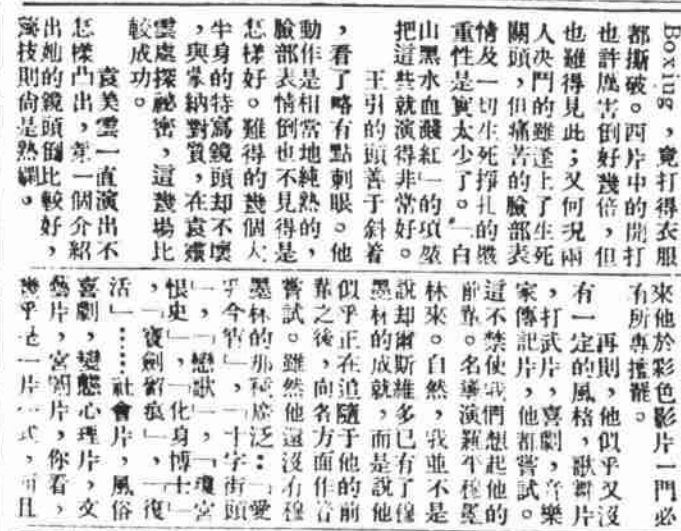 Boxing，竟打得衣服
都撕破。西片中的開打
也許厲害倒好幾倍，但
也難得見此；又何況兩
人决鬥的雖逢上了生死
關頭，但痛苦的臉部表
情及一切生死掙扎的嚴
重性是實太少了。「白
山黑水血濺紅」的項堃
把這些就演得非常好。
王引的頭善于斜着
，看了略有點刺眼。他
動作是相當地純熟的，
臉部表情倒也不見得是
怎樣好。難得的幾個大
半身的特寫鏡頭却不壞
，與蒙納對質，在袁
雲處探秘密，這幾場比
較成功。
袁美雲一直演出不
怎樣凸出，第一個介紹
出她的鏡頭倒比較好，
演技則尙是熟嫻。
來他於彩色影片一門必
有所專擅罷。
再則，他似乎又沒
有一定的風格，歌舞片
，打武片，喜劇，音樂
家傳記片，他都嘗試。
這不禁使我們想起他的
前輩。名導演羅平穆墨
林來。自然，我並不是
說却爾斯維多已有了穆
墨林的成就，而是說他
似乎正在追隨于他的前
輩之後，向各方面作音
嘗試。雖然他還沒有穆
墨林的那種廣泛：「愛
乎今宵」，「十字街頭
」，「戀歌」，「瓊宮
恨史」，「化身博士」
，「寶劍留痕」，「復
活」……社會片，風俗
喜劇，變態心理片，文
藝片，宮闈片，你看，
幾乎是一片一式，而且